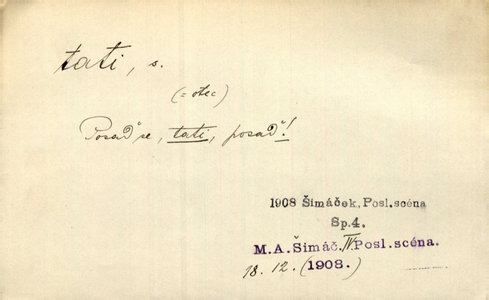 tati, s.
(= otec)
Posaď se, tati, posaď!
1908 Šimáček, Posl.scéna
Sp.4.
M.A.Šimáč. IV Posl.scéna.
18. 12. (1908.)